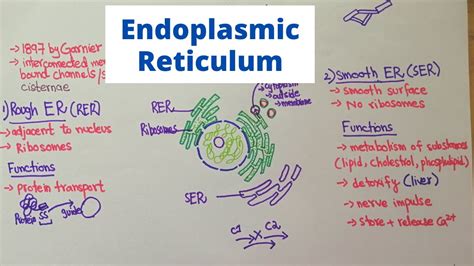 Endoplasmic
Reticulum
→ 1897 by Garnier
→ interconnected
bound channels /
cisternae
1) Rough ER (RER)
→ adjacent to nucleus
→ Ribosomes
Functions
→ Protein transport
Protein SS
guides
RER
Ribosomes
cytoplasm
→ outside
→ membrane
SER
C1
C2
2) Smooth ER (SER)
→ smooth surface
→ No ribosomes
Functions
→ metabolism of substances
(lipid, cholestrol, phospholipid)
→ detoxify (liver)
→ nerve impulse
→ store + release Ca2+